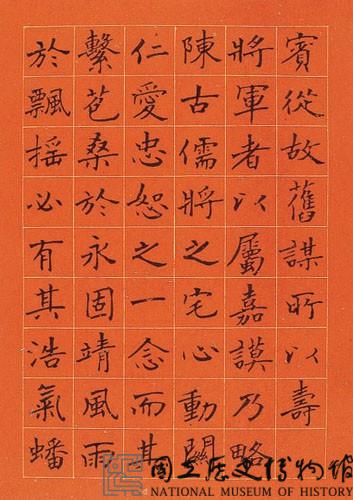 賓從故舊謀所以壽
將軍者以屬嘉謨乃略
陳古儒將之宅心動關
仁愛忠恕之一念而其
繫苞桑於永固靖風雨
於飄搖必有其浩氣蟠
國立歷史博物館
NATIONAL MUSEUM OF HISTORY